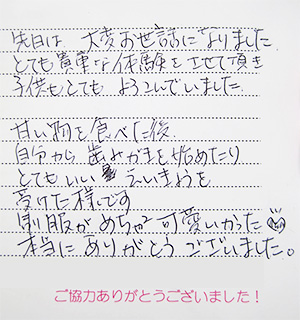 先日は 大変お世話になりました
とても貴重な体験をさせて頂き
子供もとても よろこんでいました
甘い物を食べた後
自分から 歯みがきを始めたり
とてもいい えいきょうを
受けた様です
制服がめちゃ2可愛いかった
本当にありがとうございました。
ご協力ありがとうございました！